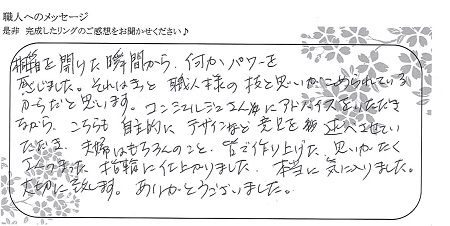 職人へのメッセージ
是非 完成したリングのご感想をお聞かせください♪
桐箱を開けた瞬間から、何かパワーを
感じました。それはきっと 職人様の技と思いがこめられている
からだと思います。コンシェルジュさん達にアドバイスをいただき
ながら、こちらも自主的に デザインなど意見を 述べさせてい
ただき、夫婦はもちろんのこと、皆で作り上げた、思いがたく
さんつまった 指輪に仕上がりました。本当に気に入りました。
大切に致します。ありがとうございました。